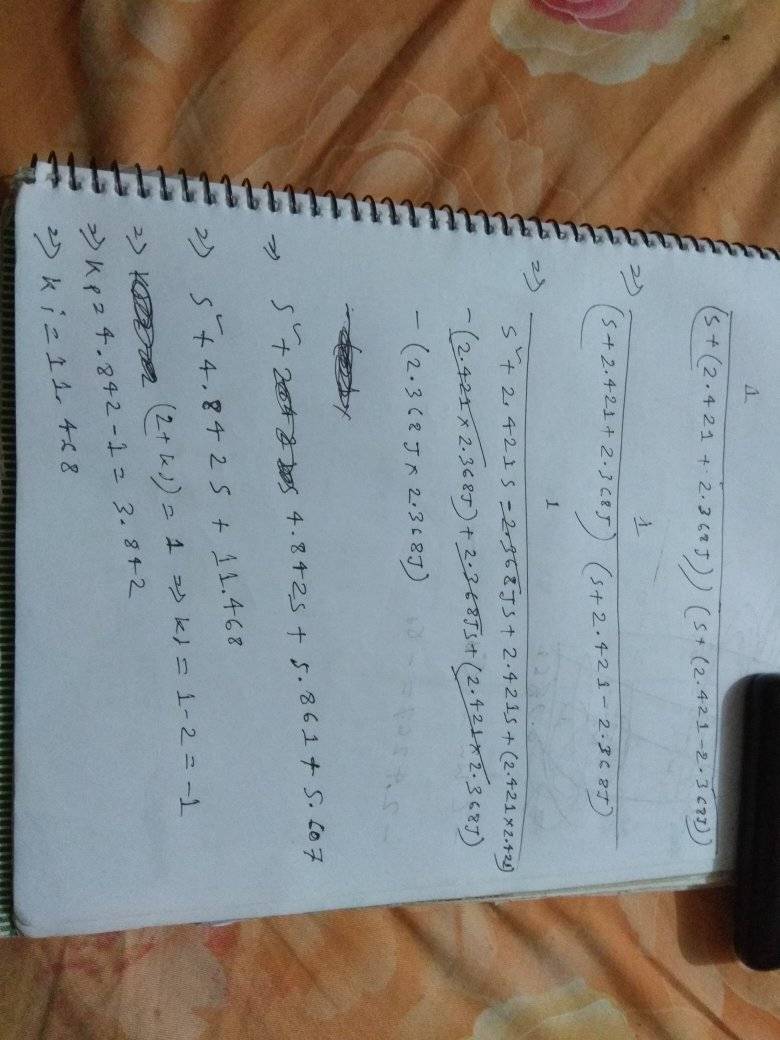 1
(s+(2.421 + 2.368J)) (s+(2.421-2.368J))
=> 1
(s+2.421+2.368J) (s+2.421-2.368J)
=> 1
s² + 2.421s - 2.368Js + 2.421s + (2.421×2.421)
- (2.421×2.368J) + 2.368Js + (2.421×2.368J)
- (2.368J × 2.368J)
=> s² + 4.842s + 5.861 + 5.607
=> s² + 4.842s + 11.468
=> (2+kd) = 1 => kd = 1-2 = -1
=> kp = 4.842-1 = 3.842
=> ki = 11.468